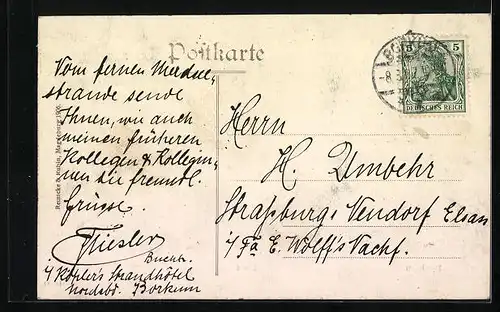 Postkarte
Vom fernen Meeres-
strande sende
Ihnen, wie auch
meinen früheren
Kollegen & Kollegin-
nen die freundl.
Grüße
Buchh.
i/ Köhler's Strandhôtel
Nordsbd. Borkum
Herrn
H. Umbehr
Straßburg-Neudorf Elsass
i/ Fa E. Wolff's Nachf.
5 5
DEUTSCHES REICH